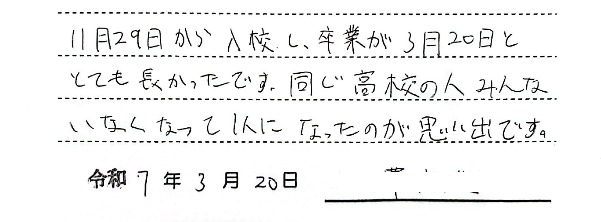 11月29日から入校し、卒業が3月20日と
とても長かったです。同じ高校の人みんな
いなくなって1人になったのが思い出です。
令和7年3月20日